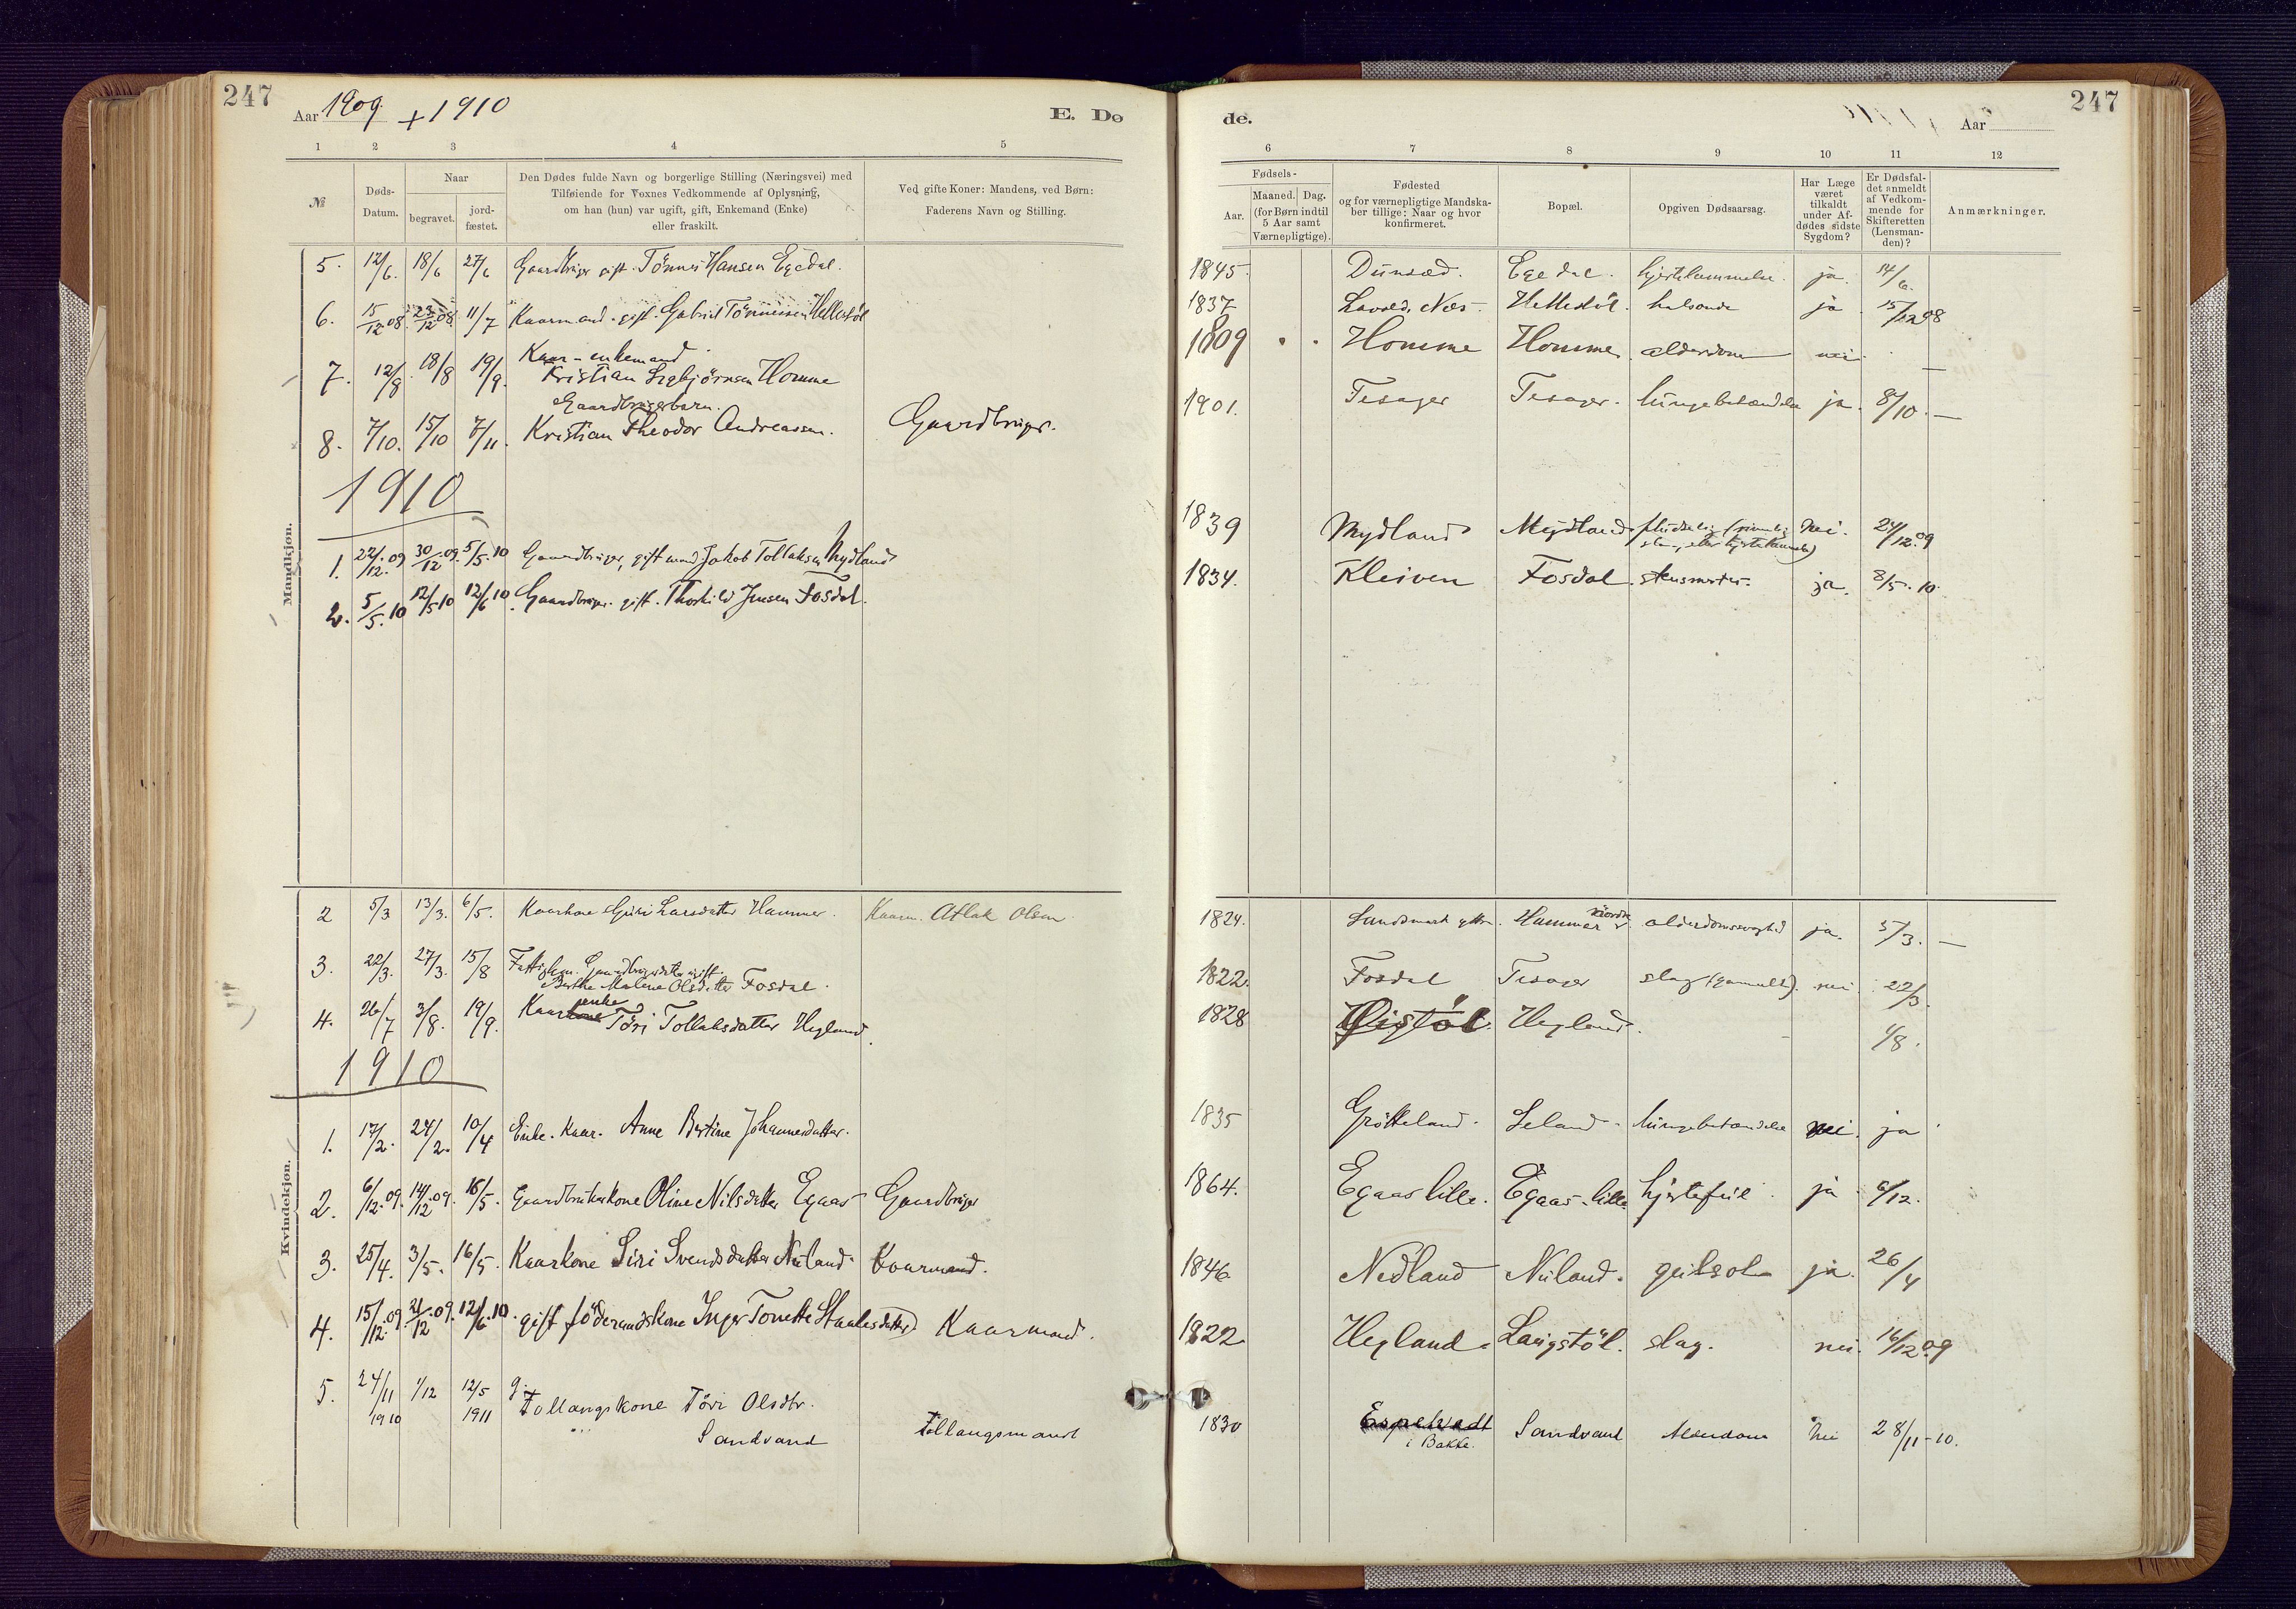 247
Aar 1909. + 1910
E. Dø
de.
Aar
247
1 2 3 4 5 6 7 8 9 10 11 12
№
Døds-
Datum.
Naar
begravet.
jord-
fæstet.
Den Dødes fulde Navn og borgerlige Stilling (Næringsvei) med
Tilføiende for Voxnes Vedkommende af Oplysning,
om han (hun) var ugift, gift, Enkemand (Enke)
eller fraskilt.
Ved gifte Koner: Mandens, ved Børn:
Faderens Navn og Stilling.
Fødsels-
Aar.
Maaned. Dag.
(for Børn indtil
5 Aar samt
Værnepligtige).
Fødested
og for værnepligtige Mandska-
ber tillige: Naar og hvor
konfirmeret.
Bopæl.
Opgiven Dødsaarsag.
Har Læge
været
tilkaldt
under Af-
dødes sidste
Sygdom?
Er Dødsfal-
det anmeldt
af Vedkom-
mende for
Skifteretten
(Lensman-
den)?
Anmærkninger.
Mandkjøn.
5. 12/6. 18/6 27/6 Gaardbruger gift. Tönnes Hansen Egedal. 1845. Egedal. hjertelammelse. ja. 14/6.
6. 15/12 08. 23/12 08. 11/7 Kaarmand. gift. Gabriel Tönnessen Hellestöl 1837 Næs. Hellestöl. ja 15/12 08
7. 12/8. 18/8 19/9. Kaar-enkemand
Kristian Homme 1809 Homme Homme alderdom nei. —
8. 7/10. 15/10 7/11. Gaardbrugerbarn.
Kristian Theodor Andreassen. Gaardbruger. 1901. Tesager Tesager. lungebetændelse ja. 8/10. —
1910
1. 22/12. 09 30/12 09. 5/5. 10 Gaardbruger, gift mand Jakob Tollaksen Mydland 1839 Mydland Mydland nei. 24/12. 09
2. 5/5. 10 12/5 10 12/6 10 Gaardbruger. gift. Thorkild Jensen Fosdal. 1834. Kleiven Fosdal. ja. 8/5. 10.
Kvindekjøn.
2 5/3 13/3. 6/5. Kaarkone Guri Larsdatter Hammer. Kaarm. Atlak Olsen. 1824. Hammer alderdomssvaghed ja. 5/3. —
3. 22/3. 27/3. 15/8 ugift.
Berthe Malene Olsdatter Fosdal. 1822. Fosdal Tesager slag (gammelt). nei. 22/3.
4. 26/7 3/8. 19/9. Kaarenke Töri Tollaksdatter Hegland. 1828 Hegland. - 1/8.
1910
1. 17/2. 24/2. 10/4 Enke. Kaar. Anne Bertine Johannesdatter. 1835 Grötteland. Leland. lungebetændelse nei. ja
2. 6/12. 09. 14/12 09. 16/5. Gaardbrukerkone Oline Nilsdatter Egaas Gaardbruger 1864. Egaas lille. Egaas-lille hjertefeil. ja. 6/12.
3. 25/4. 3/5. 16/5. Kaarkone Siri Svendsdatter Nuland. Kaarmand. 1846 Nedland Nuland. gulsot ja. 26/4
4. 15/12. 09. 21/12 09. 12/6. 10. gift föderaadskone Inger Tonette Staalesdatter Kaarmand. 1822 Hegland. Langstöl. slag. nei. 16/12 09
5. 24/11 1910 1/12 12/5 1911 g. Follaugskone Töri Olsdtr.
Sandvand Follaugsmand 1830 Espetvedt
i Bakke. Sandvand Alderdom Nei 28/11-10.